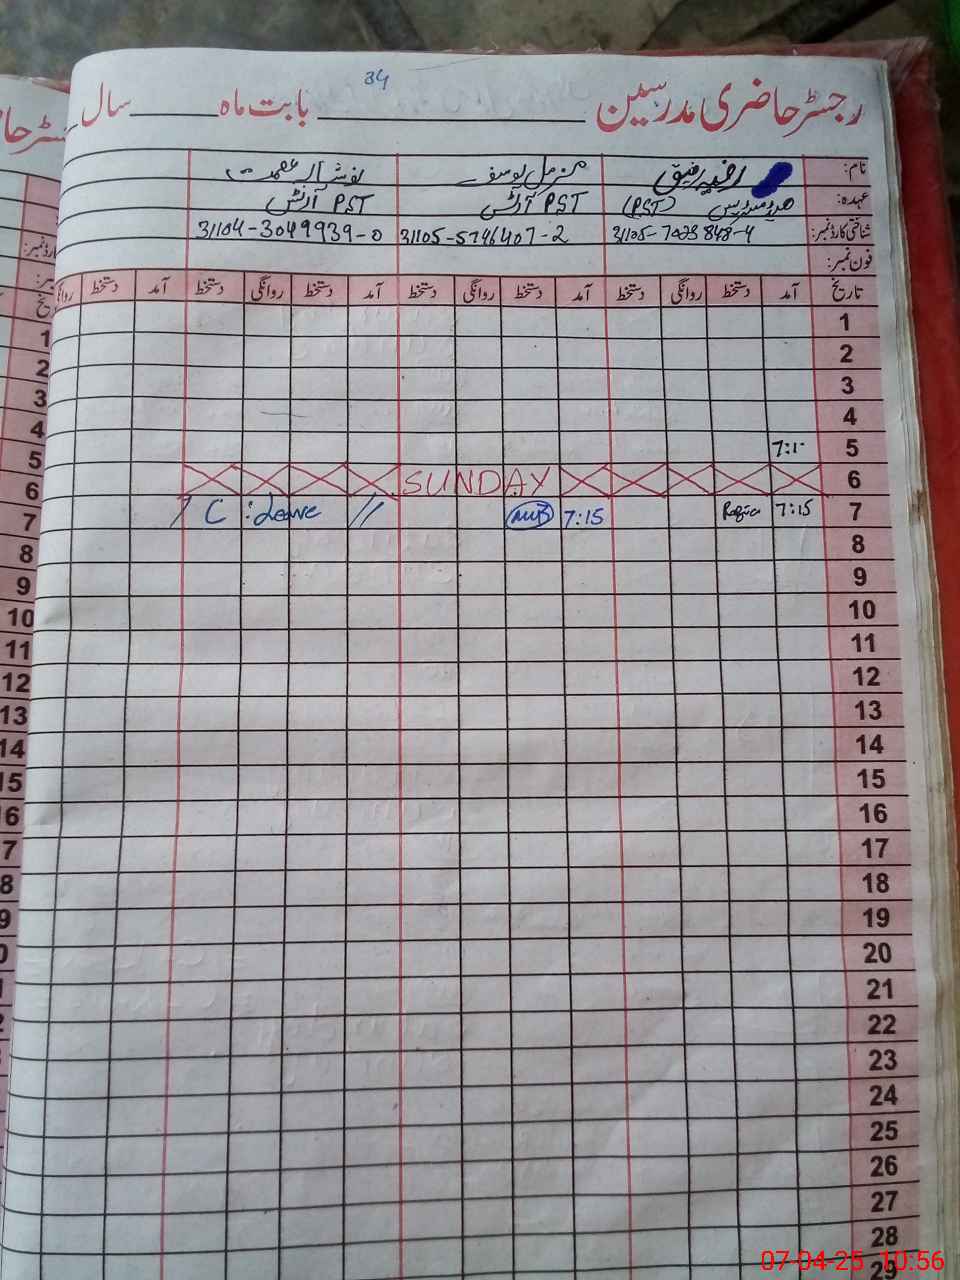 34
رجسٹر حاضری مدرسین بابت ماہ سال
نام: رفیق مزمل یوسف
عہدہ: ہیڈ مسٹریس (PST) PST آرٹس PST آرٹس
شناختی کارڈ نمبر: 31105-5746407-2 31104-3049939-0
فون نمبر:
تاریخ آمد دستخط روانگی دستخط آمد دستخط روانگی دستخط آمد دستخط روانگی دستخط آمد دستخط
1
2
3
4
5
6 SUNDAY
7 7:15 7:15 C : Leave //
8
9
10
11
12
13
14
15
16
17
18
19
20
21
22
23
24
25
26
27
28
29
07-04-25 10:56